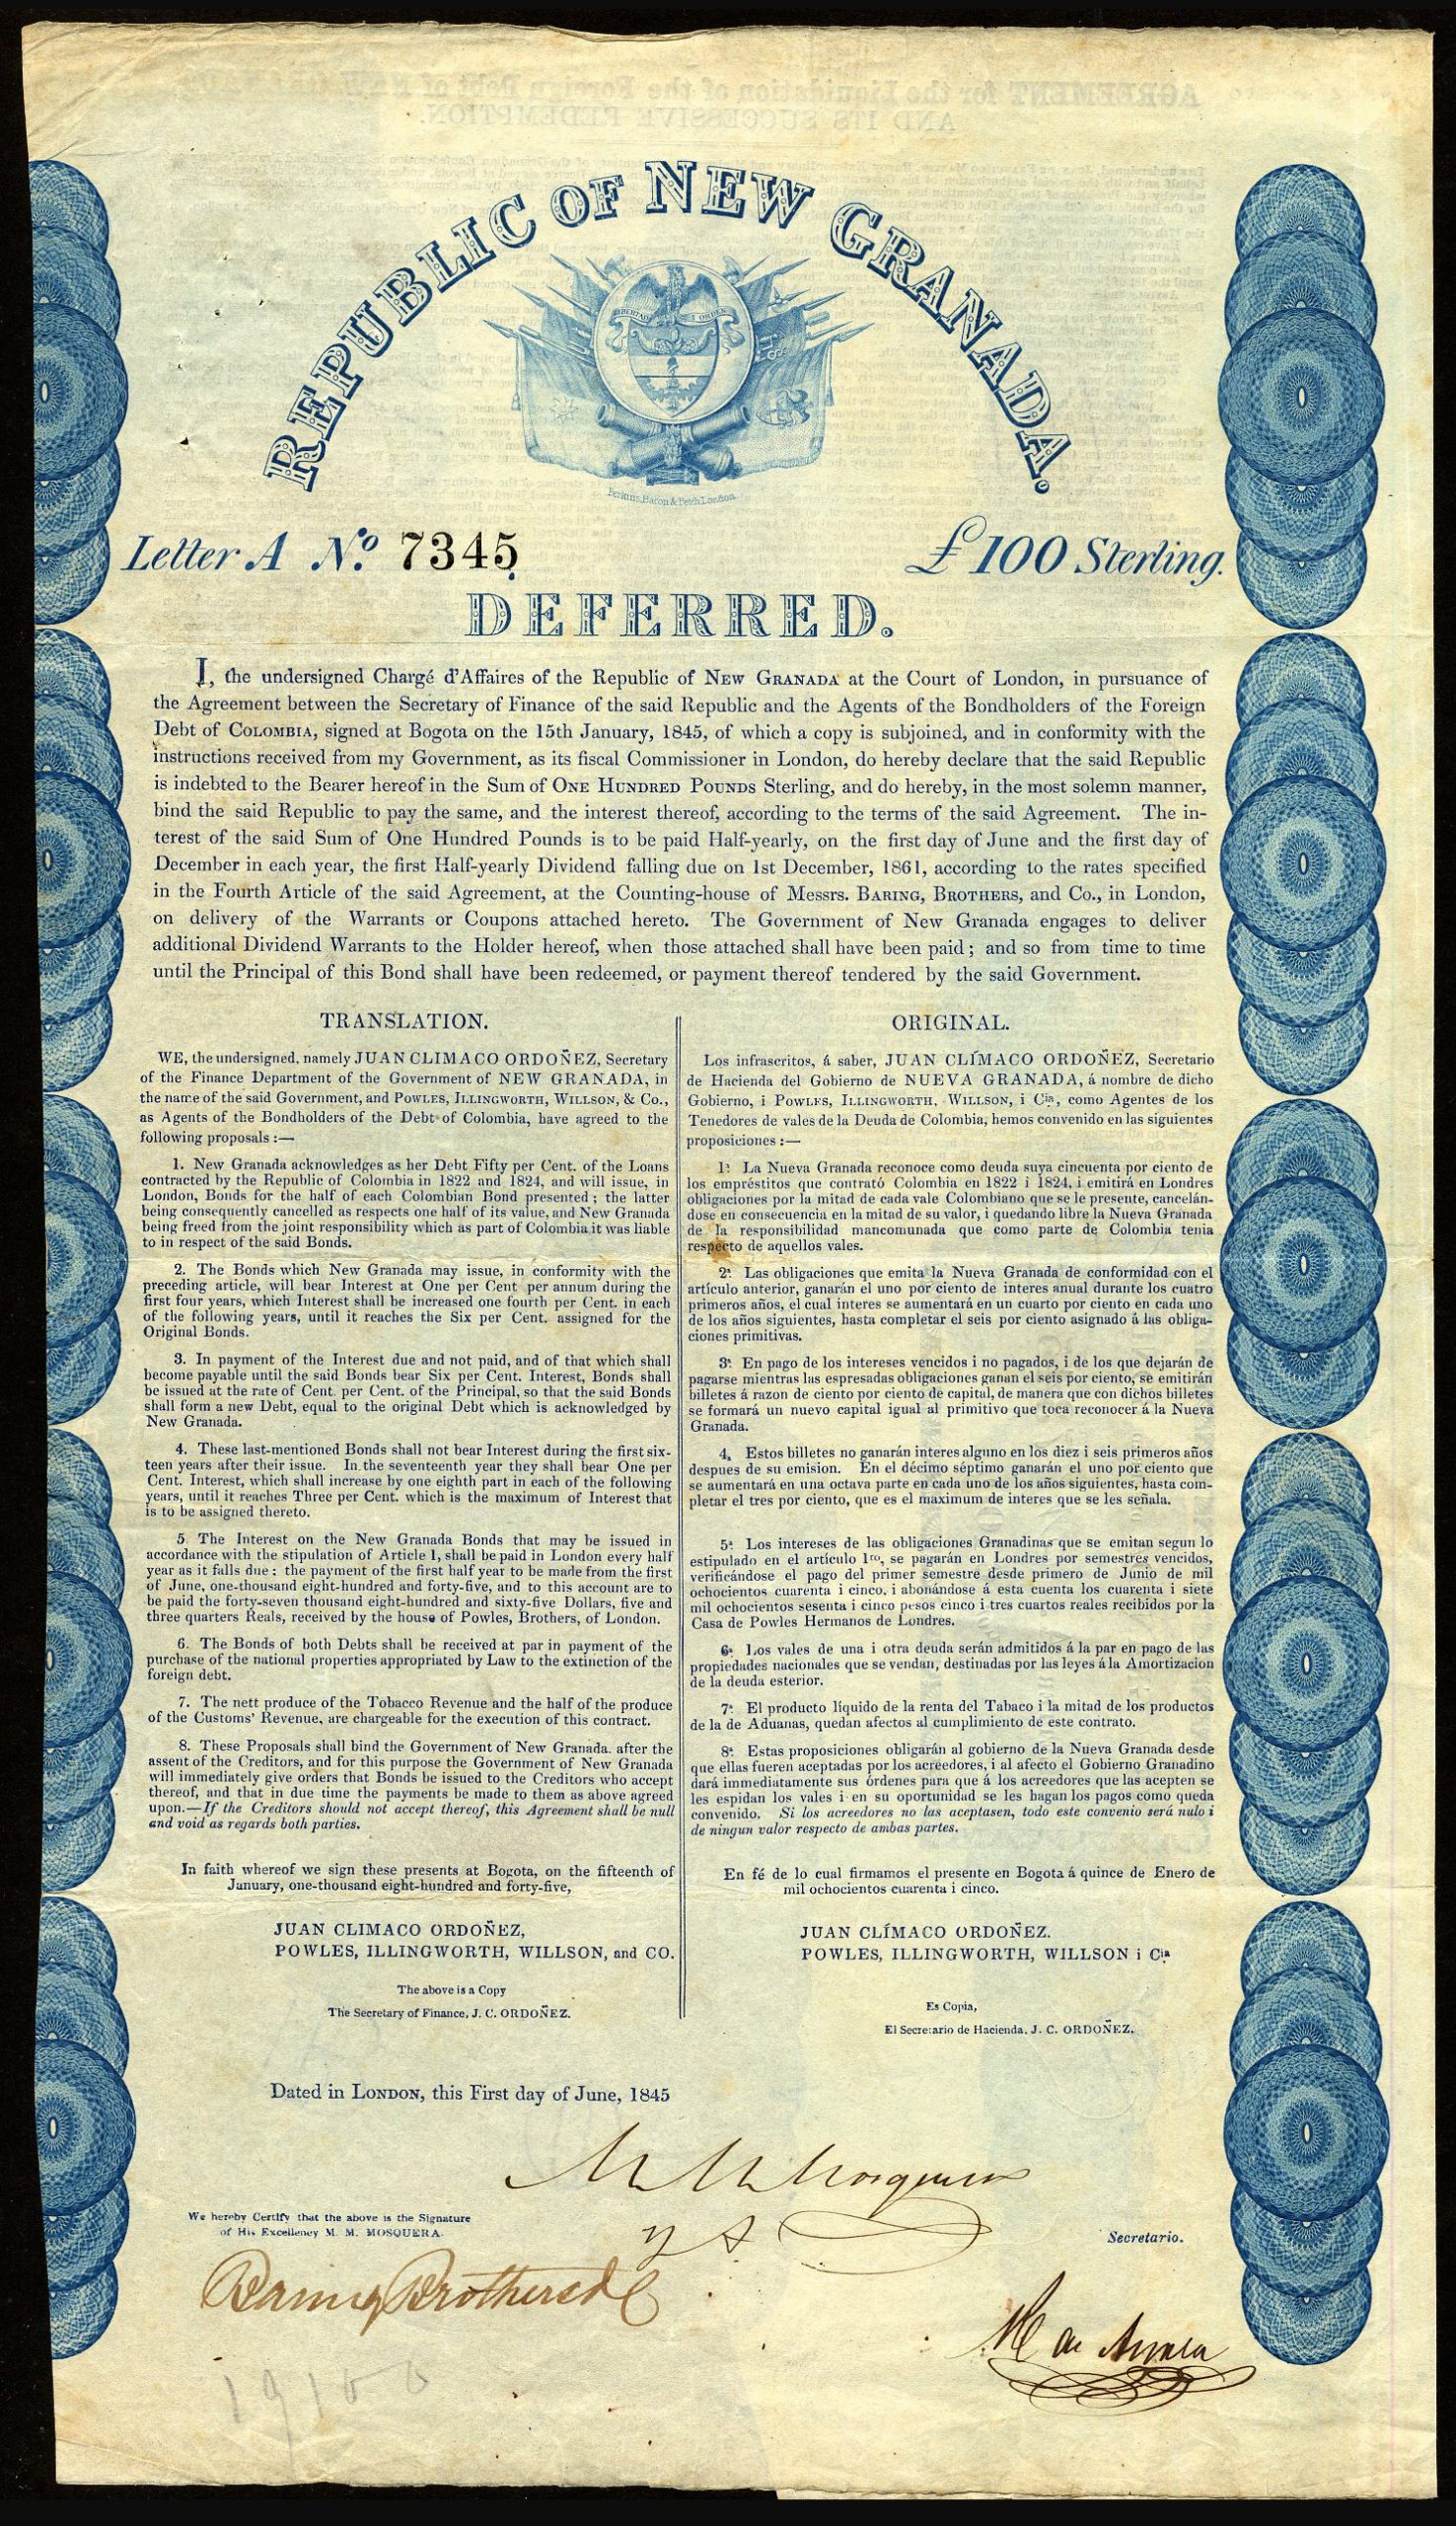 REPUBLIC OF NEW GRANADA.
LIBERTAD I ORDEN
Perkins, Bacon & Petch London
Letter A No. 7345
£100 Sterling.
DEFERRED.
I, the undersigned Chargé d'Affaires of the Republic of NEW GRANADA at the Court of London, in pursuance of
the Agreement between the Secretary of Finance of the said Republic and the Agents of the Bondholders of the Foreign
Debt of COLOMBIA, signed at Bogota on the 15th January, 1845, of which a copy is subjoined, and in conformity with the
instructions received from my Government, as its fiscal Commissioner in London, do hereby declare that the said Republic
is indebted to the Bearer hereof in the Sum of ONE HUNDRED POUNDS Sterling, and do hereby, in the most solemn manner,
bind the said Republic to pay the same, and the interest thereof, according to the terms of the said Agreement. The in-
terest of the said Sum of One Hundred Pounds is to be paid Half-yearly, on the first day of June and the first day of
December in each year, the first Half-yearly Dividend falling due on 1st December, 1861, according to the rates specified
in the Fourth Article of the said Agreement, at the Counting-house of Messrs. BARING, BROTHERS, and Co., in London,
on delivery of the Warrants or Coupons attached hereto. The Government of New Granada engages to deliver
additional Dividend Warrants to the Holder hereof, when those attached shall have been paid; and so from time to time
until the Principal of this Bond shall have been redeemed, or payment thereof tendered by the said Government.
TRANSLATION.
WE, the undersigned, namely JUAN CLIMACO ORDOÑEZ, Secretary
of the Finance Department of the Government of NEW GRANADA, in
the name of the said Government, and POWLES, ILLINGWORTH, WILLSON, & Co.,
as Agents of the Bondholders of the Debt of Colombia, have agreed to the
following proposals :—
1. New Granada acknowledges as her Debt Fifty per Cent. of the Loans
contracted by the Republic of Colombia in 1822 and 1824, and will issue, in
London, Bonds for the half of each Colombian Bond presented; the latter
being consequently cancelled as respects one half of its value, and New Granada
being freed from the joint responsibility which as part of Colombia it was liable
to in respect of the said Bonds.
2. The Bonds which New Granada may issue, in conformity with the
preceding article, will bear Interest at One per Cent per annum during the
first four years, which Interest shall be increased one fourth per Cent. in each
of the following years, until it reaches the Six per Cent. assigned for the
Original Bonds.
3. In payment of the Interest due and not paid, and of that which shall
become payable until the said Bonds bear Six per Cent. Interest, Bonds shall
be issued at the rate of Cent. per Cent. of the Principal, so that the said Bonds
shall form a new Debt, equal to the original Debt which is acknowledged by
New Granada.
4. These last-mentioned Bonds shall not bear Interest during the first six-
teen years after their issue. In the seventeenth year they shall bear One per
Cent. Interest, which shall increase by one eighth part in each of the following
years, until it reaches Three per Cent. which is the maximum of Interest that
is to be assigned thereto.
5. The Interest on the New Granada Bonds that may be issued in
accordance with the stipulation of Article 1, shall be paid in London every half
year as it falls due: the payment of the first half year to be made from the first
of June, one-thousand eight-hundred and forty-five, and to this account are to
be paid the forty-seven thousand eight-hundred and sixty-five Dollars, five and
three quarters Reals, received by the house of Powles, Brothers, of London.
6. The Bonds of both Debts shall be received at par in payment of the
purchase of the national properties appropriated by Law to the extinction of the
foreign debt.
7. The nett produce of the Tobacco Revenue and the half of the produce
of the Customs' Revenue, are chargeable for the execution of this contract.
8. These Proposals shall bind the Government of New Granada. after the
assent of the Creditors, and for this purpose the Government of New Granada
will immediately give orders that Bonds be issued to the Creditors who accept
thereof, and that in due time the payments be made to them as above agreed
upon.—If the Creditors should not accept thereof, this Agreement shall be null
and void as regards both parties.
In faith whereof we sign these presents at Bogota, on the fifteenth of
January, one-thousand eight-hundred and forty-five,
JUAN CLIMACO ORDOÑEZ,
POWLES, ILLINGWORTH, WILLSON, and CO.
The above is a Copy
The Secretary of Finance, J. C. ORDOÑEZ.
ORIGINAL.
Los infrascritos, á saber, JUAN CLÍMACO ORDOÑEZ, Secretario
de Hacienda del Gobierno de NUEVA GRANADA, á nombre de dicho
Gobierno, i POWLES, ILLINGWORTH, WILLSON, i Cia, como Agentes de los
Tenedores de vales de la Deuda de Colombia, hemos convenido en las siguientes
proposiciones :—
1ª La Nueva Granada reconoce como deuda suya cincuenta por ciento de
los empréstitos que contrató Colombia en 1822 i 1824, i emitirá en Londres
obligaciones por la mitad de cada vale Colombiano que se le presente, cancelán-
dose en consecuencia en la mitad de su valor, i quedando libre la Nueva Granada
de la responsibilidad mancomunada que como parte de Colombia tenia
respecto de aquellos vales.
2ª Las obligaciones que emita la Nueva Granada de conformidad con el
artículo anterior, ganarán el uno por ciento de interes anual durante los cuatro
primeros años, el cual interes se aumentará en un cuarto por ciento en cada uno
de los años siguientes, hasta completar el seis por ciento asignado á las obliga-
ciones primitivas.
3ª En pago de los intereses vencidos i no pagados, i de los que dejarán de
pagarse mientras las espresadas obligaciones ganan el seis por ciento, se emitirán
billetes á razon de ciento por ciento de capital, de manera que con dichos billetes
se formará un nuevo capital igual al primitivo que toca reconocer á la Nueva
Granada.
4ª Estos billetes no ganarán interes alguno en los diez i seis primeros años
despues de su emision. En el décimo séptimo ganarán el uno por ciento que
se aumentará en una octava parte en cada uno de los años siguientes, hasta com-
pletar el tres por ciento, que es el maximum de interes que se les señala.
5ª Los intereses de las obligaciones Granadinas que se emitan segun lo
estipulado en el artículo 1ro, se pagarán en Londres por semestres vencidos,
verificándose el pago del primer semestre desde primero de Junio de mil
ochocientos cuarenta i cinco, i abonándose á esta cuenta los cuarenta i siete
mil ochocientos sesenta i cinco pesos cinco i tres cuartos reales recibidos por la
Casa de Powles Hermanos de Londres.
6ª Los vales de una i otra deuda serán admitidos á la par en pago de las
propiedades nacionales que se vendan, destinadas por las leyes á la Amortizacion
de la deuda esterior.
7ª El producto líquido de la renta del Tabaco i la mitad de los productos
de la de Aduanas, quedan afectos al cumplimiento de este contrato.
8ª Estas proposiciones obligarán al gobierno de la Nueva Granada desde
que ellas fueren aceptadas por los acreedores, i al afecto el Gobierno Granadino
dará immediatamente sus órdenes para que á los acreedores que las acepten se
les espidan los vales i en su oportunidad se les hagan los pagos como queda
convenido. Si los acreedores no las aceptasen, todo este convenio será nulo i
de ningun valor respecto de ambas partes.
En fé de lo cual firmamos el presente en Bogota á quince de Enero de
mil ochocientos cuarenta i cinco.
JUAN CLÍMACO ORDOÑEZ.
POWLES, ILLINGWORTH, WILLSON i Cia
Es Copia,
El Secretario de Hacienda, J. C. ORDOÑEZ.
Dated in LONDON, this First day of June, 1845
M M Mosquera
We hereby Certify that the above is the Signature
of His Excellency M. M. MOSQUERA.
Secretario.
Baring Brothers & Co